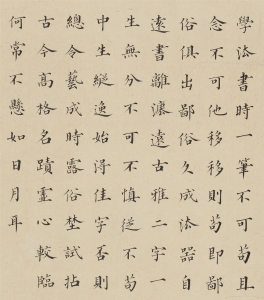 學法書時一筆不可苟且
念不可他移移則苟即鄙
俗俱出鄙俗久成法器自
遠書離遠古雅二字一
生無分不可不慎從不苟
中生縱逸始得佳字否則
總令藝成時露俗埜試拈
古今高格名蹟靈心較臨
何常不懸如日月耳